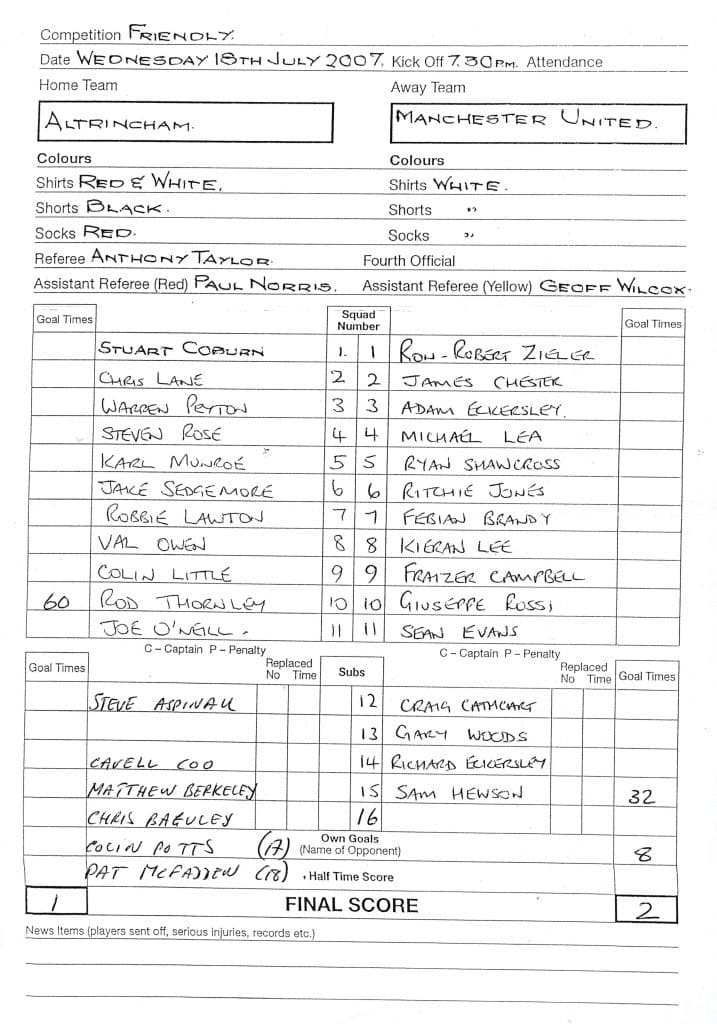 Competition FRIENDLY.
Date WEDNESDAY 18TH JULY 2007. Kick Off 7.30PM. Attendance
Home Team Away Team
ALTRINCHAM. MANCHESTER UNITED.
Colours Colours
Shirts RED & WHITE. Shirts WHITE.
Shorts BLACK. Shorts "
Socks RED. Socks "
Referee ANTHONY TAYLOR. Fourth Official
Assistant Referee (Red) PAUL NORRIS. Assistant Referee (Yellow) GEOFF WILCOX.
Goal Times Squad Number Goal Times
STUART COBURN 1. 1 RON-ROBERT ZIELER
CHRIS LANE 2 2 JAMES CHESTER
WARREN PEYTON 3 3 ADAM ECKERSLEY.
STEVEN ROSE 4 4 MICHAEL LEA
KARL MUNROE 5 5 RYAN SHAWCROSS
JAKE SEDGEMORE 6 6 RITCHIE JONES
ROBBIE LAWTON 7 7 FEBIAN BRANDY
VAL OWEN 8 8 KIERAN LEE
COLIN LITTLE 9 9 FRAIZER CAMPBELL
60 ROD THORNLEY 10 10 GIUSEPPE ROSSI
JOE O'NEILL. 11 11 SEAN EVANS
C – Captain P – Penalty C – Captain P – Penalty
Goal Times Replaced No Time Subs Replaced No Time Goal Times
STEVE ASPINALL 12 CRAIG CATHCART
13 GARY WOODS
CAVELL COO 14 RICHARD ECKERSLEY
MATTHEW BERKELEY 15 SAM HEWSON 32
CHRIS BAGULEY 16
COLIN POTTS (17) Own Goals (Name of Opponent) 8
PAT MCFADDEN (18) Half Time Score
1 FINAL SCORE 2
News Items (players sent off, serious injuries, records etc.)